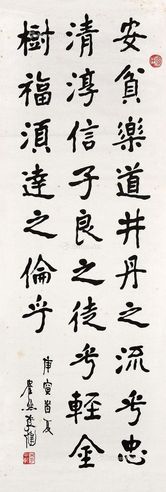 安貧樂道井丹之流乎忠
清淳信子良之徒乎輕金
樹福須達之倫乎
庚寅首夏